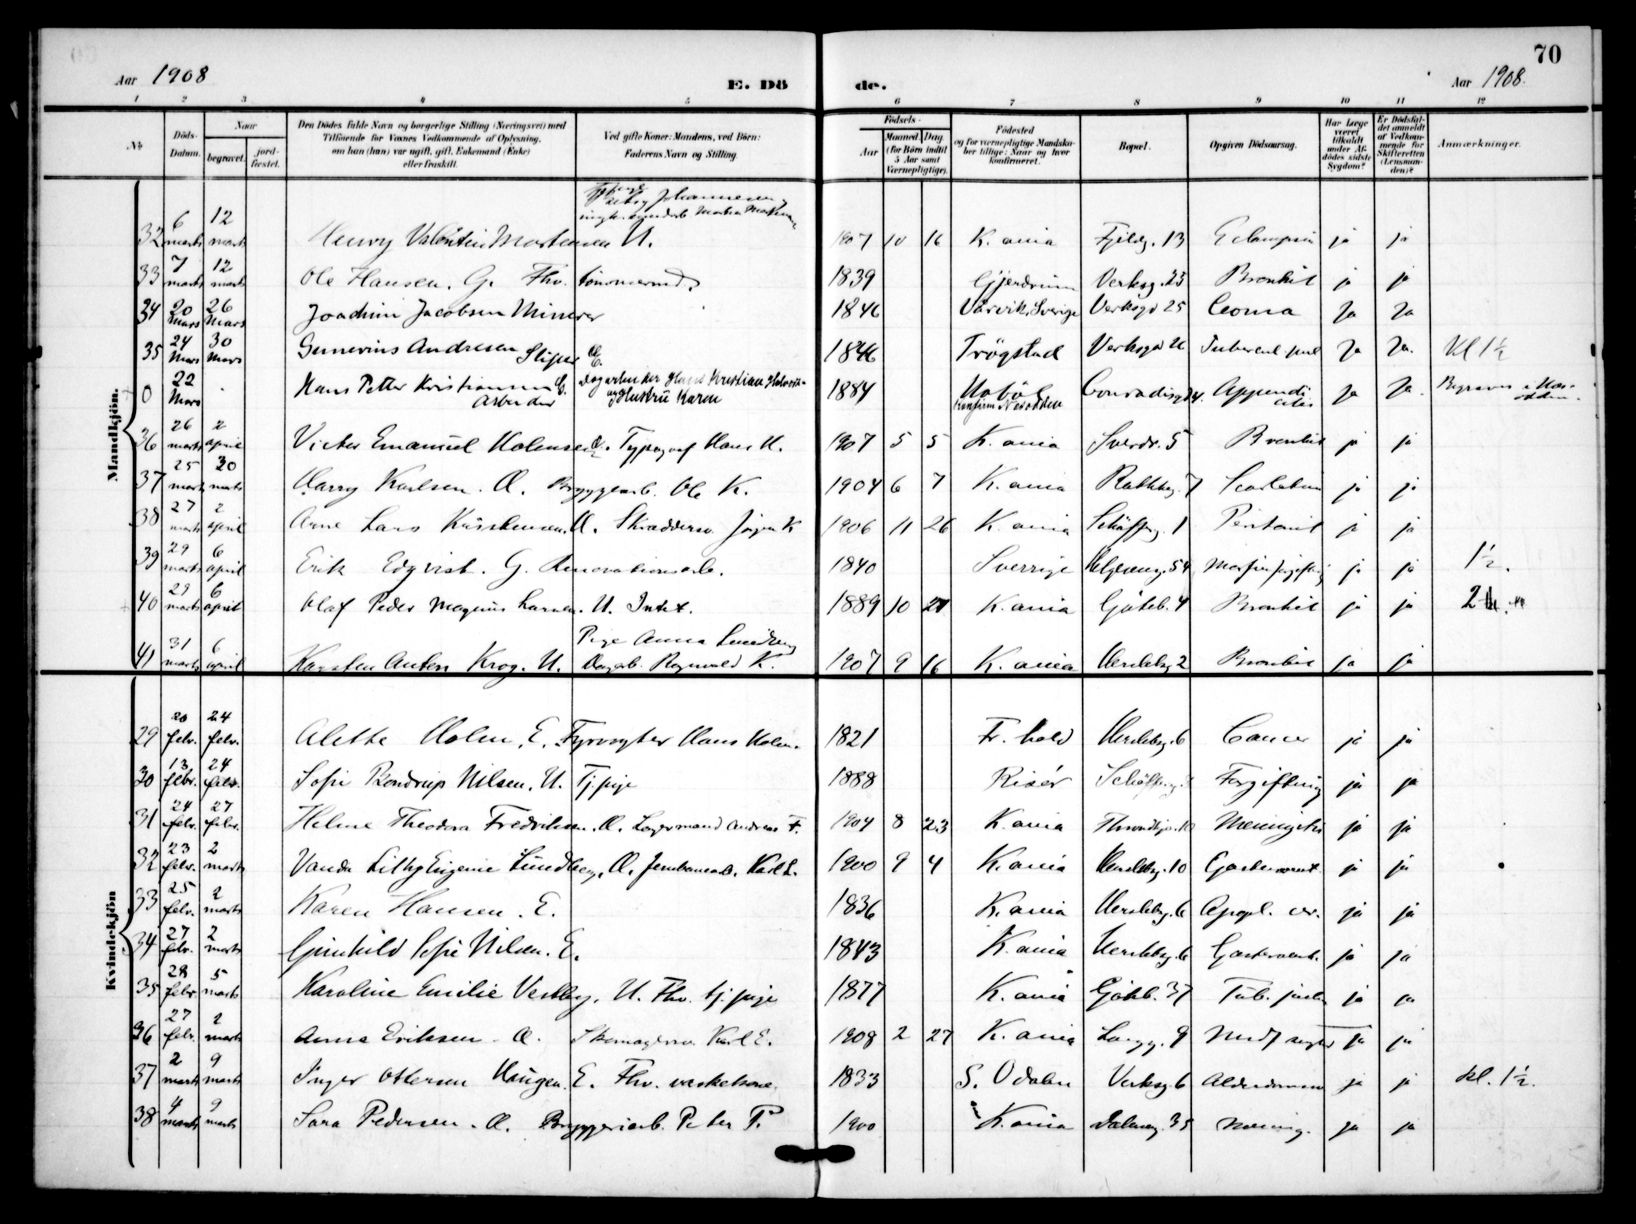 70
Aar 1908
E. Dö
de.
Aar 1908.
1 2 3 4 5 6 7 8 9 10 11 12
No.
Döds-Datum.
Naar
begravet.
jord-fæstet.
Den Dödes fulde Navn og borgerlige Stilling (Næringsvei) med
Tilföiende for Voxnes Vedkommende af Oplysning,
om han (hun) var ugift, gift, Enkemand (Enke)
eller fraskilt.
Ved gifte Koner: Mandens, ved Börn:
Faderens Navn og Stilling.
Födsels-
Aar
Maaned
Dag
(for Börn indtil
5 Aar samt
Værnepligtige).
Födested
og for værnepligtige Mandskaber tillige: Naar og hvor
konfirmeret.
Bopæl.
Opgiven Dödsaarsag.
Har Læge
været
tilkaldt
under Afdödes sidste
Sygdom?
Er Dödsfaldet anmeldt
af Vedkommende for
Skifteretten
(Lensmanden)?
Anmærkninger.
Mandkjön.
32 6 marts 12 marts Henry Valentin Mortensen U. 1907 10 16 K.ania Fjeldg. 13 Eclampsi ja ja
33 7 marts 12 marts Ole Hansen. G. Fhv. 1839 Gjerdrum Verksg. 23 Bronkit ja ja
34 20 Mars 26 Mars Joachim Jacobsen Minerer 1846 Värvik, Sverige Verksgd 25 Coma Ja Ja
35 24 Mars 30 Mars Gunerius Andresen Sliper E. 1846 Trögstad Verksgd Tubercul pul Ja Ja. Kl 1½
0 22 Mars Hans Petter Kristiansen Arbeider Dagarbeider Hans Kristian og Hustru Karen 1884 Konfirm. Nesodden Conradisgd Appendicites Ja Ja. Begraves i
36 26 marts 2 april Victor Emanuel Halvorsen Æ. Typograf Hans H. 1907 5 5 K.ania Sverdr. 5 Bronkit ja ja
37 25 marts 30 marts Harry Karlsen. Æ. Bryggearb. Ole K. 1904 6 7 K.ania Rathkeg. 7 Scarlatina ja ja
38 27 marts 2 april Arne Lars Kristiansen. Æ. Skræddersv. Jörgen K 1906 11 26 K.ania Schöffg. 1 Peritonit ja ja
39 29 marts 6 april Erik Edqvist. G. Renovationsarb. 1840 Sverrige Helgeseng. 54 Morfinforgiftnig ja ja 1½.
40 29 marts 6 april Olaf Peder Magnus Larsen. U. Intet. 1889 10 27 K.ania Göteb. 4 Bronkit ja ja 2
Pige Anna Lundberg
41 31 marts 6 april Karsten Anton Krog. U. Dagarb. Ragnvald K. 1907 9 16 K.ania Herslebg 2 Bronkit ja ja
Kvindekjön
29 20 febr. 24 febr. Alette Holm. E. Fyrvogter Hans Holm. 1821 Fr.hald Herslebg. 6 Cancer ja ja
30 13 febr. 24 febr. Sofie Bondrup Nilsen. U. Tj.pige 1888 Risör Schöffg. Forgiftning ja ja
31 24 febr. 27 febr. Helene Theodora Fredriksen. Æ. Lagermand Andreas F. 1904 8 23 K.ania Throndhjs. 10 Meningitis ja ja
32 23 febr. 2 marts Vanda Lilly Eugenie Lundberg. Æ. Jernbanearb. Karl L. 1900 9 4 K.ania Herslebg. 10 Gastroent. ja ja
33 25 febr. 2 marts Karen Hansen. E. 1836 K.ania Herslebg. 6 Apopl. cer. ja ja
34 27 febr. 2 marts Gunhild Sofie Nilsen. E. 1843 K.ania Herslebg. 6 Gastroent. ja ja
35 28 febr. 5 marts Karoline Emilie Vestby. U. Fhv. tj.pige 1877 K.ania Göteb. 37 Tub. pulm ja ja
36 27 febr. 2 marts Anna Eriksen. Æ. Skomagersv. Karl E. 1908 2 27 K.ania Langg. 9 Medf svaghed ja ja
37 2 marts 9 marts Inger Ottersen Haugen. E. Fhv. vaskekone. 1833 S. Odalen Verksg 6 Alderdomssv ja ja kl. 1½.
38 4 marts 9 marts Sara Pedersen. Æ. Bryggeriarb. Peter P. 1900 K.ania Dalsveg. 35 Mening. ja ja